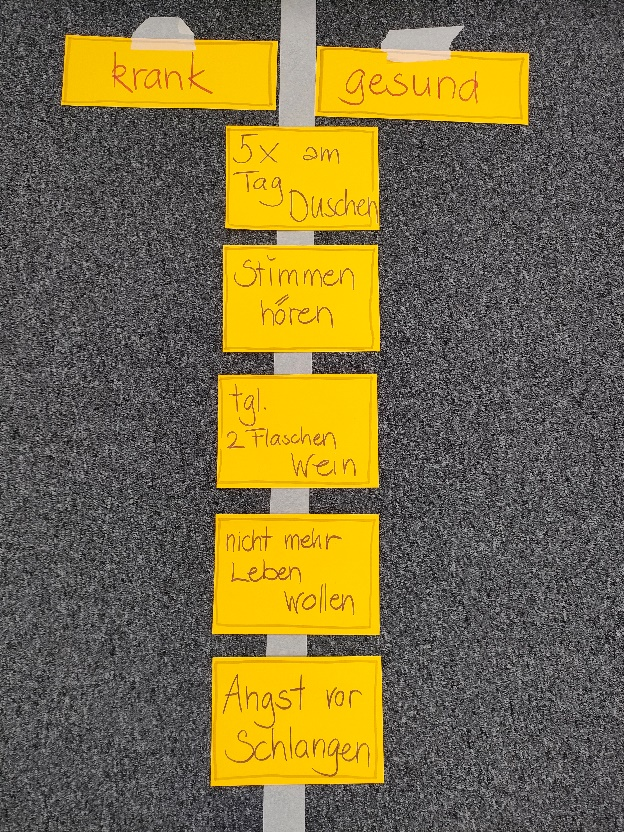 krank
gesund
5x am
Tag
Duschen
Stimmen
hören
tgl.
2 Flaschen
Wein
nicht mehr
Leben
wollen
Angst vor
Schlangen